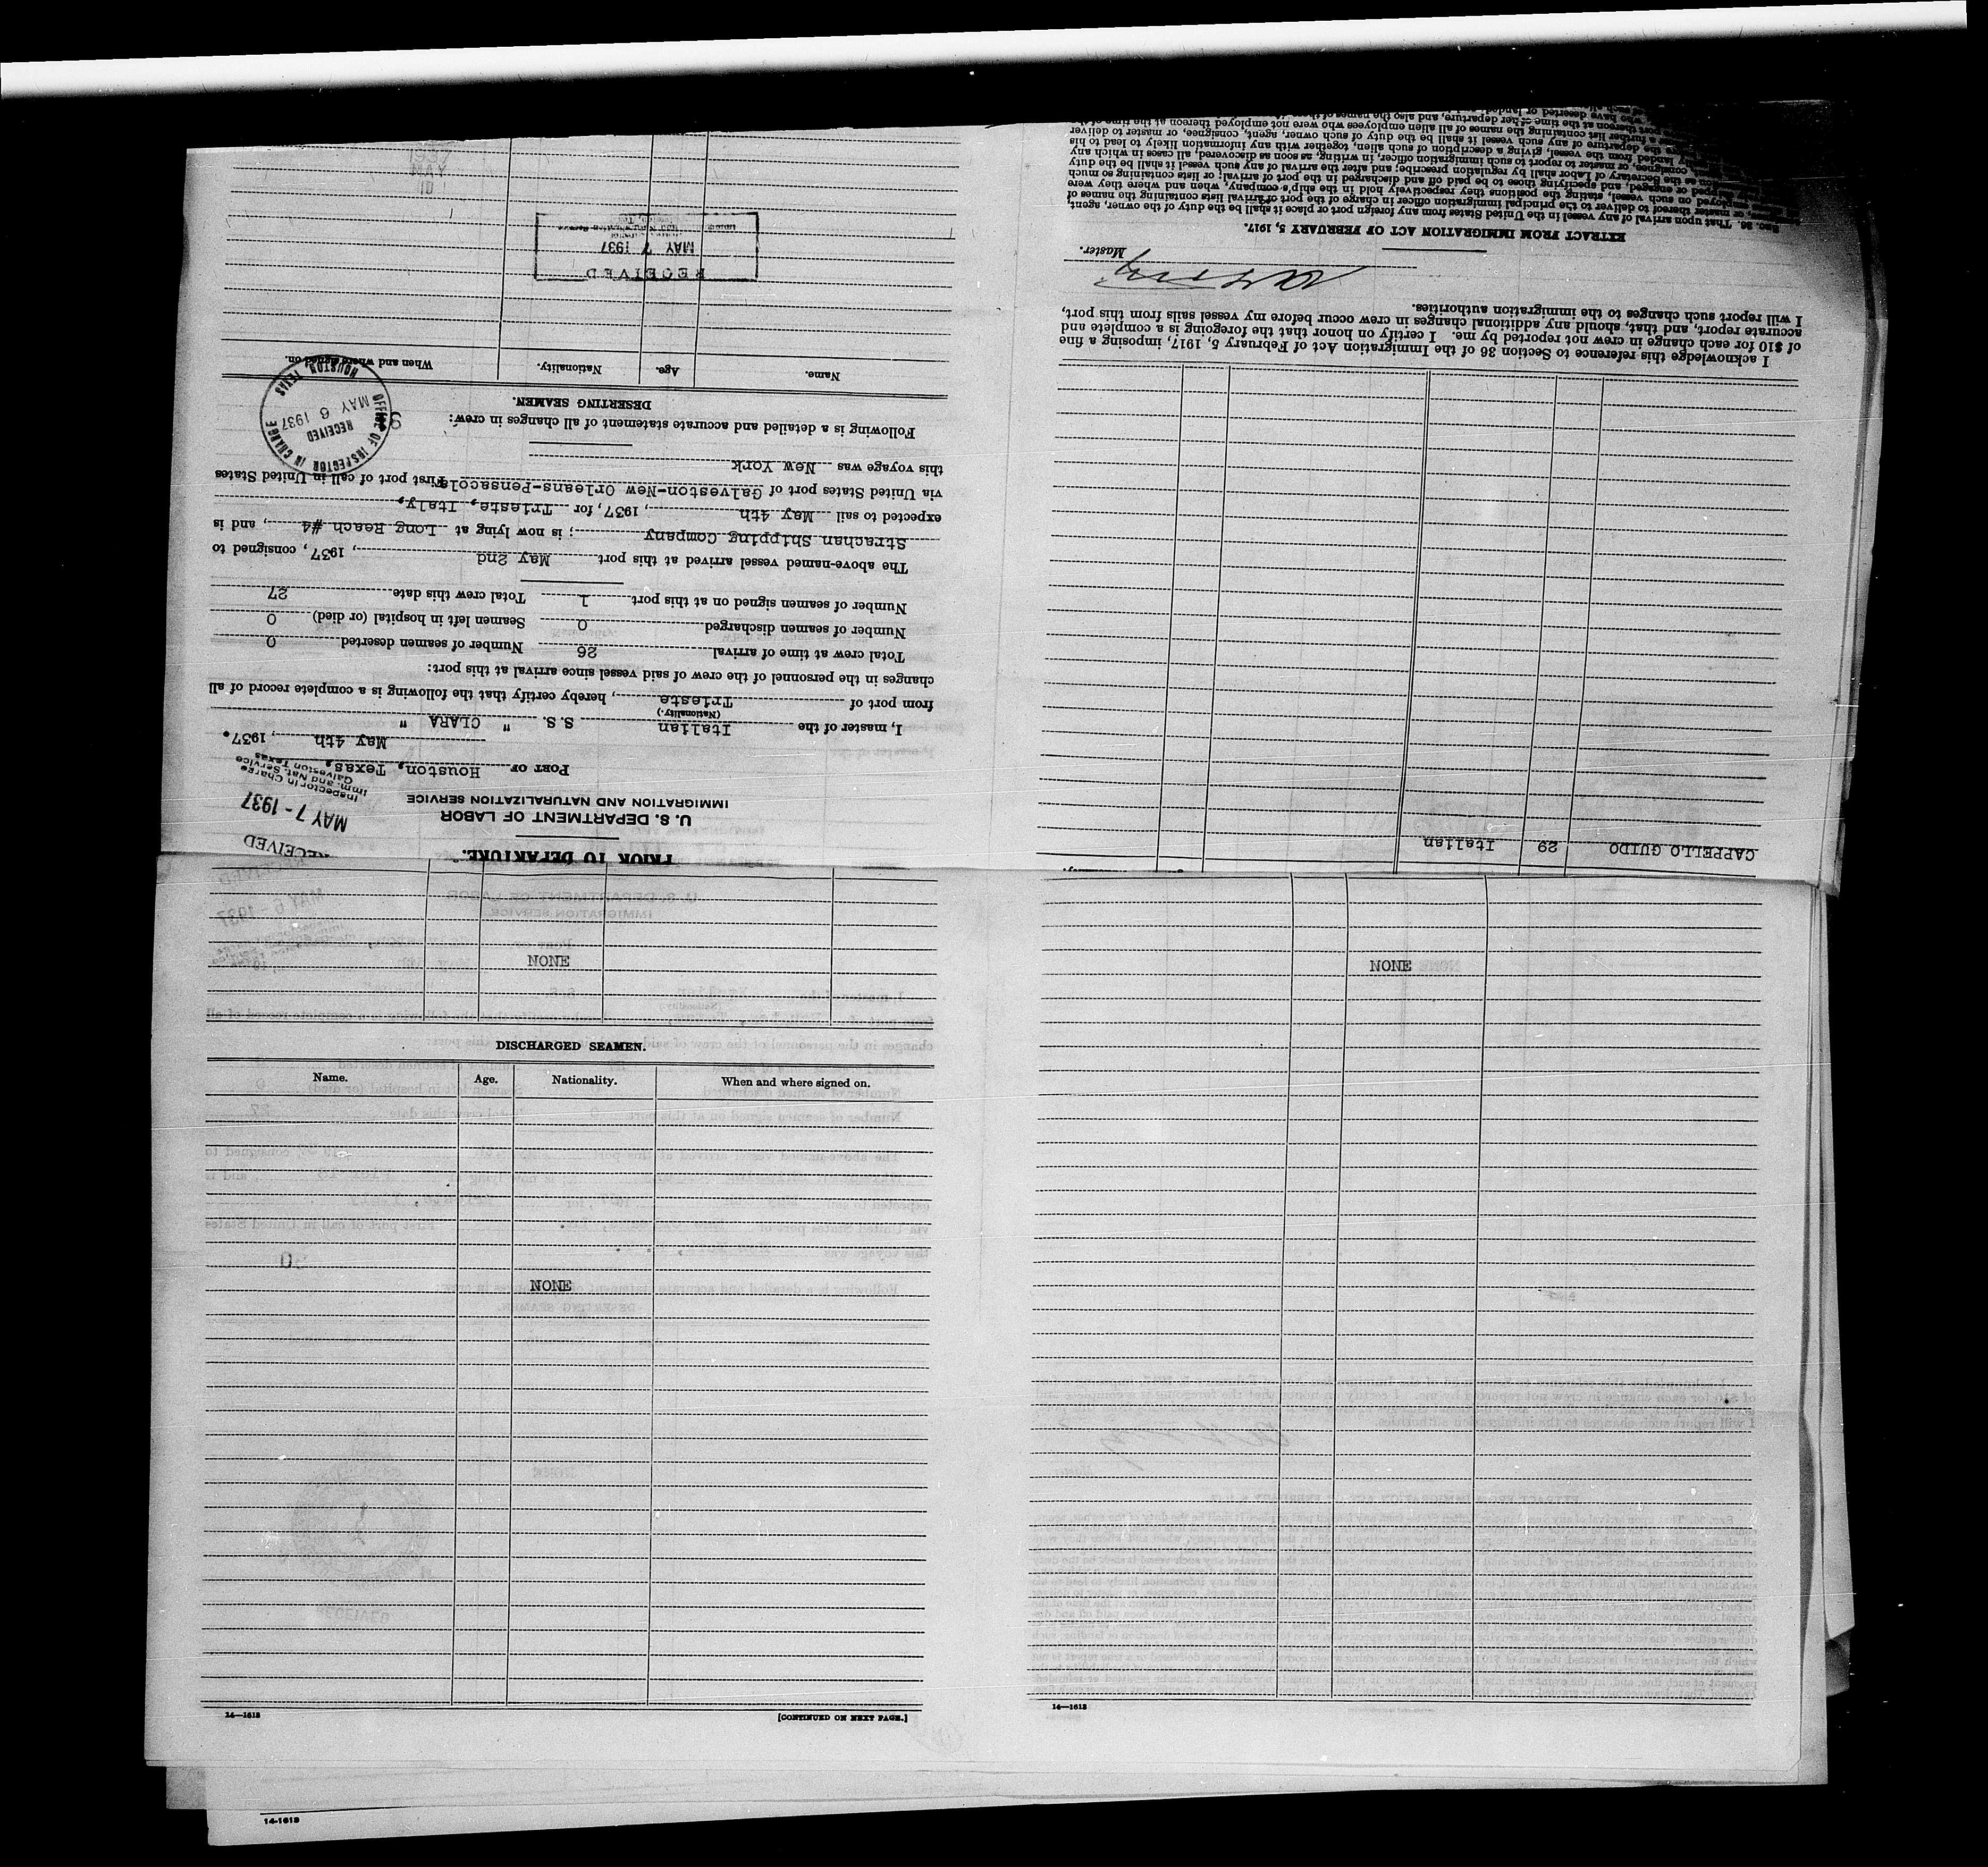 PRIOR TO DEPARTURE.
U. S. DEPARTMENT OF LABOR
IMMIGRATION AND NATURALIZATION SERVICE
RECEIVED
MAY 7 - 1937
Inspector in Charge
Imm. and Nat. Service
Galveston Texas
PORT OF Houston, Texas,
May 4th, 1937.
I, master of the Italian S.S. " CLARA "
(Nationality.)
from port of Trieste, hereby certify that the following is a complete record of all
changes in the personnel of the crew of said vessel since arrival at this port:
Total crew at time of arrival 26 Number of seamen deserted 0
Number of seamen discharged 0 Seamen left in hospital (or died) 0
Number of seamen signed on at this port 1 Total crew this date 27
The above-named vessel arrived at this port May 2nd, 1937, consigned to
Strachan Shipping Company; is now lying at Long Reach #4, and is
expected to sail May 4th, 1937, for Trieste, Italy,
via United States port of Galveston-New Orleans-Pensacola First port of call in United States
this voyage was New York
Following is a detailed and accurate statement of all changes in crew:
OFFICE OF INSPECTOR IN CHARGE
RECEIVED
MAY 6 1937
HOUSTON TEXAS
DESERTING SEAMEN.
Name. Age. Nationality. When and where signed on.
RECEIVED
MAY 7 1937
CAPPELLO GUIDO 29 Italian
I acknowledge this reference to Section 36 of the Immigration Act of February 5, 1917, imposing a fine
of $10 for each change in crew not reported by me. I certify on honor that the foregoing is a complete and
accurate report, and that, should any additional changes in crew occur before my vessel sails from this port,
I will report such changes to the immigration authorities.
Master.
EXTRACT FROM IMMIGRATION ACT OF FEBRUARY 5, 1917.
SEC. 36. That upon arrival of any vessel in the United States from any foreign port or place it shall be the duty of the owner, agent,
or master thereof to deliver to the principal immigration officer in charge of the port of arrival lists containing the names of
employed on such vessel, stating the positions they respectively hold in the ship's company, when and where they were
shipped or engaged, and specifying those to be paid off and discharged in the port of arrival; or lists containing so much
as the Secretary of Labor shall by regulation prescribe; and after the arrival of any such vessel it shall be the duty
consignee, or master to report to such immigration officer, in writing, as soon as discovered, all cases in which any
landed from the vessel, giving a description of such alien, together with any information likely to lead to his
the departure of any such vessel it shall be the duty of such owner, agent, consignee, or master to deliver
further list containing the names of all alien employees who were not employed thereon at the time of the
port thereon at the time of her departure, and also the names of those
who have deserted or landed
NONE
DISCHARGED SEAMEN.
Name. Age. Nationality. When and where signed on.
NONE
14—1613 [CONTINUED ON NEXT PAGE.]
NONE
14—1613
14-1613